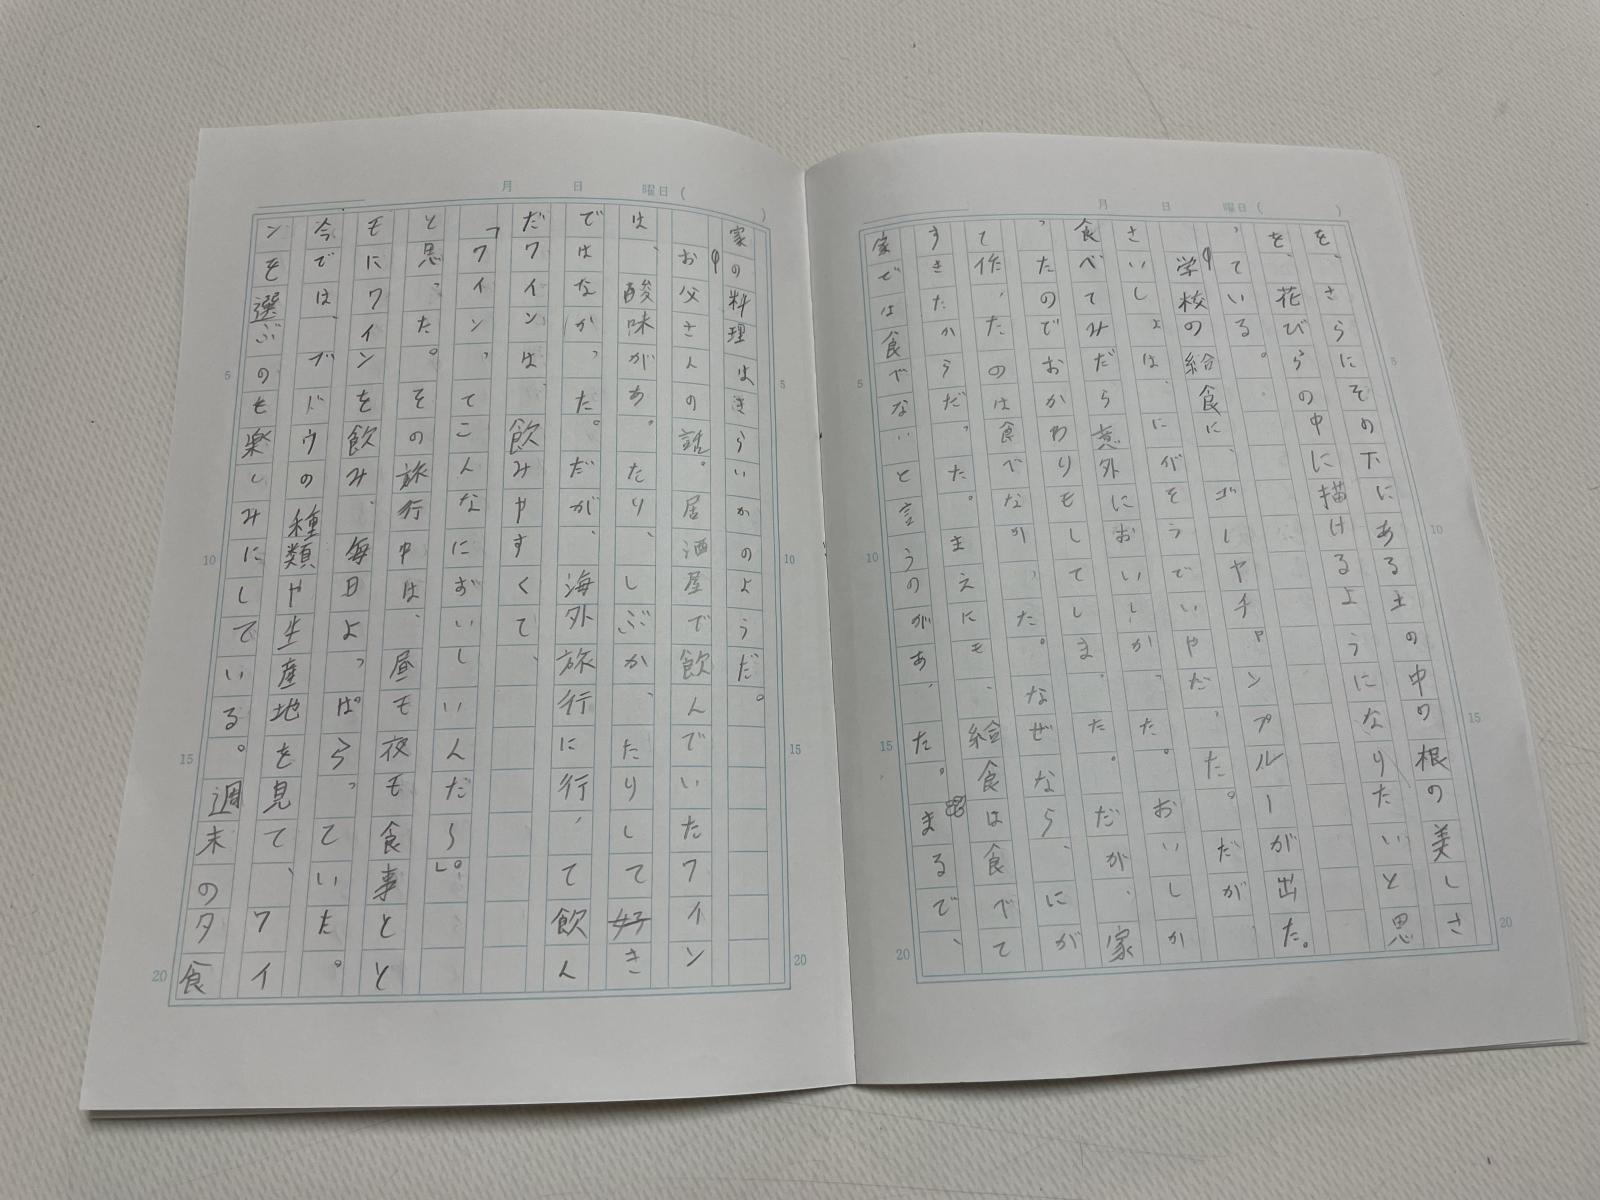 月 日 曜日( )
を、さらにその下にある土の中の根の美しさ
を、花びらの中に描けるようになりたいと思
っている。
学校の給食に、ゴーヤチャンプルーが出た。
さいしょは、にがそうでいやだった。だが
食べてみたら意外においしかった。おいしか
ったのでおかわりもしてしまった。だが、家
て作ったのは食べなかった。なぜなら、にが
すぎたからだった。まえにも、給食は食べて
家では食べないと言うのがあった。まるで、
5
10
15
20
月 日 曜日( )
家の料理はきらいかのようだ。
お父さんの話。居酒屋で飲んでいたワイン
は、酸味があったり、しぶかったりして好き
ではなかった。だが、海外旅行に行って飲ん
だワインは、飲みやすくて、
「ワインってこんなにおいしいんだ〜」。
と思った。その旅行中は、昼も夜も食事とと
もにワインを飲み、毎日よっぱらっていた。
今では、ブドウの種類や生産地を見て、ワイ
ンを選ぶのも楽しみにしている。週末の夕食
5
10
15
20